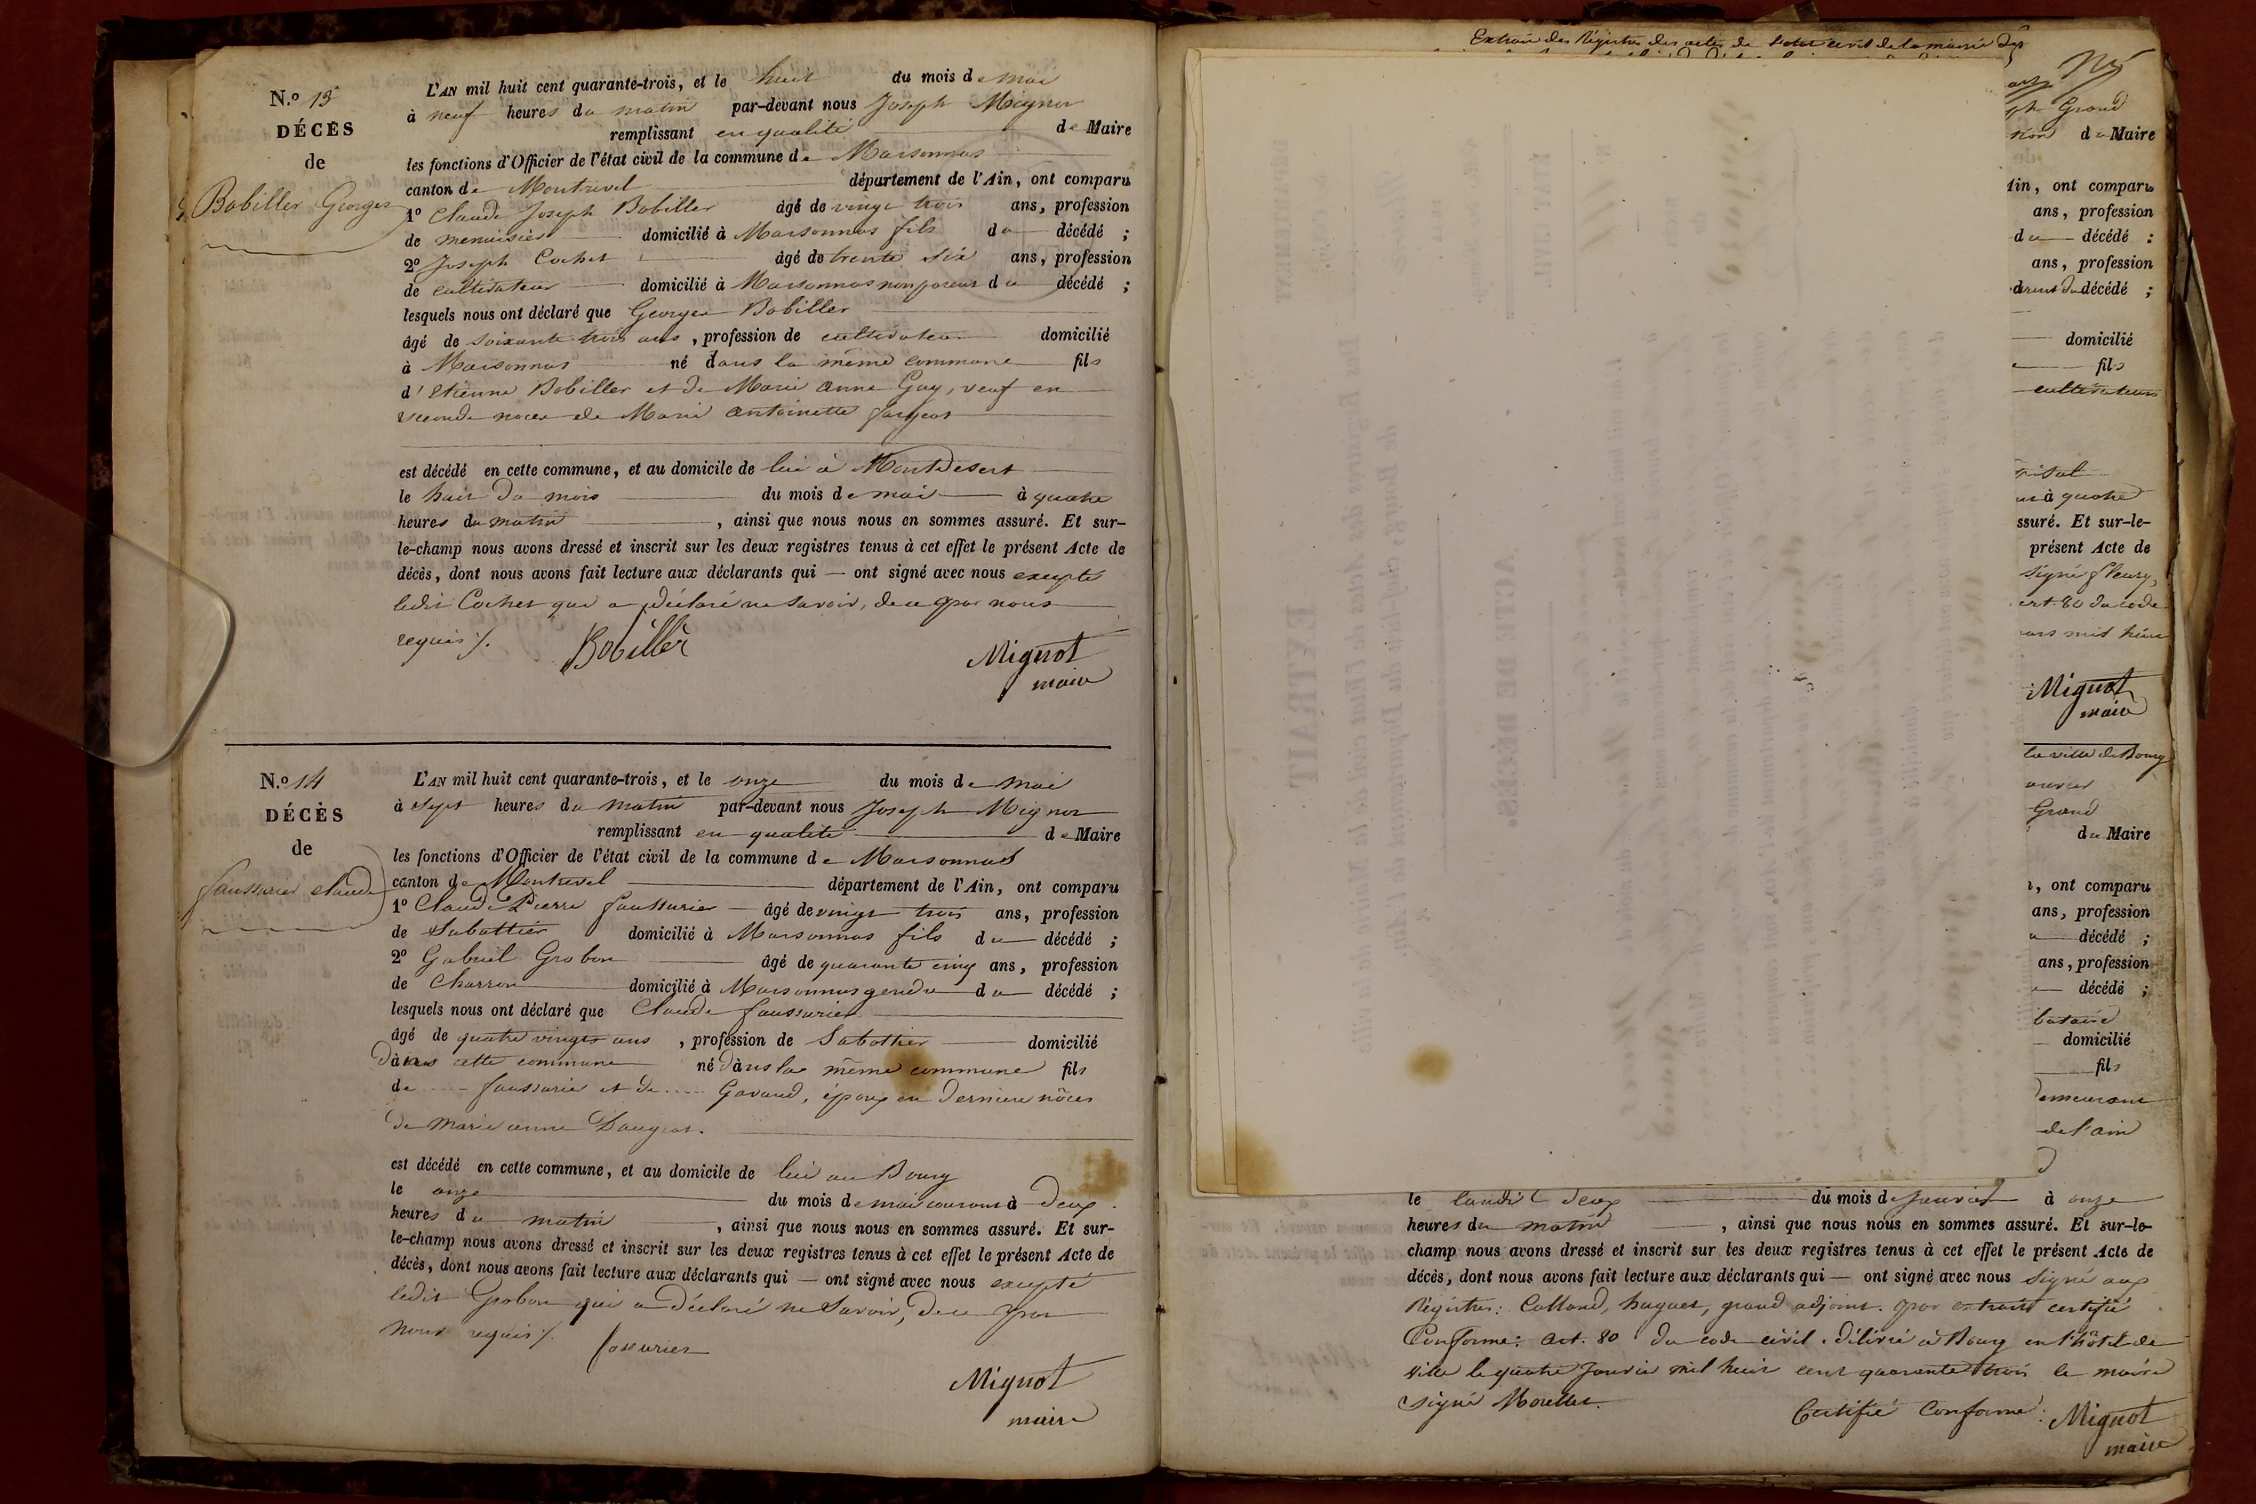 N.º 13
DÉCÈS
de
Bobiller Georges
L'AN mil huit cent quarante-trois, et le huit du mois de mai
à neuf heures du matin par-devant nous Joseph Mignot
remplissant en qualité de Maire
les fonctions d'Officier de l'état civil de la commune de Marsonnas
canton de Montrevel département de l'Ain, ont comparu
1º Claude Joseph Bobiller âgé de vingt trois ans, profession
de menuisier domicilié à Marsonnas fils du décédé ;
2º Joseph Cochet âgé de trente six ans, profession
de cultivateur domicilié à Marsonnas non parent du décédé ;
lesquels nous ont déclaré que Georges Bobiller
âgé de soixante trois ans, profession de cultivateur domicilié
à Marsonnas né dans la même commune fils
d'Etienne Bobiller et de Marie Anne Guy, veuf en
seconde noces de Marie Antoinette
est décédé en cette commune, et au domicile de lui à Montdesert
le huit du mois du mois de mai à quatre
heures du matin, ainsi que nous nous en sommes assuré. Et sur-
le-champ nous avons dressé et inscrit sur les deux registres tenus à cet effet le présent Acte de
décès, dont nous avons fait lecture aux déclarants qui — ont signé avec nous excepté
ledit Cochet qui a déclaré ne savoir, de ce par nous
requis /.
Bobiller
Mignot
maire
N.º 14
DÉCÈS
de
faussurier claude
L'AN mil huit cent quarante-trois, et le onze du mois de mai
à sept heures du matin par-devant nous Joseph Mignot
remplissant en qualité de Maire
les fonctions d'Officier de l'état civil de la commune de Marsonnas
canton de Montrevel département de l'Ain, ont comparu
1º Claude Pierre faussurier âgé de vingt trois ans, profession
de Sabottier domicilié à Marsonnas fils du décédé ;
2º Gabriel Grobon âgé de quarante cinq ans, profession
de Charron domicilié à Marsonnas gendre du décédé ;
lesquels nous ont déclaré que Claude faussurier
âgé de quatre vingts ans, profession de Sabottier domicilié
dans cette commune né dans la même commune fils
de ---- faussurier et de ---- Gavand, époux en dernière nôces
de Marie anne Daujat.
est décédé en cette commune, et au domicile de lui au Bourg
le onze du mois de mai courant à deux
heures du matin, ainsi que nous nous en sommes assuré. Et sur-
le-champ nous avons dressé et inscrit sur les deux registres tenus à cet effet le présent Acte de
décès, dont nous avons fait lecture aux déclarants qui — ont signé avec nous excepté
ledit Grobon qui a déclaré ne savoir, de ce par
nous requis /.
fossurier
Mignot
maire
Extrait des Régistres des actes de l'état civil de la mairie de
Grand
du Maire
Ain, ont comparu
ans, profession
du décédé :
ans, profession
du décédé ;
domicilié
fils
cultivateurs
à quatre
ssuré. Et sur-le-
présent Acte de
signé fleury,
art. 80 du code
mil huit
Mignot
maire
la ville de Bourg
Grand
du Maire
, ont comparu
ans, profession
décédé ;
ans, profession
décédé ;
domicilié
fils
demeurant
de l'ain
le lundi deux du mois de Janvier à onze
heures du matin, ainsi que nous nous en sommes assuré. Et sur-le-
champ nous avons dressé et inscrit sur les deux registres tenus à cet effet le présent Acte de
décès, dont nous avons fait lecture aux déclarants qui — ont signé avec nous signé aux
Régistres : Colland, huguet, grand adjoint. pour extrait certifié
Conforme : art. 80 du code civil. délivré à Bourg en l'hôtel de
ville le quatre Janvier mil huit cent quarante trois le maire
signé
Certifié Conforme : Mignot
maire